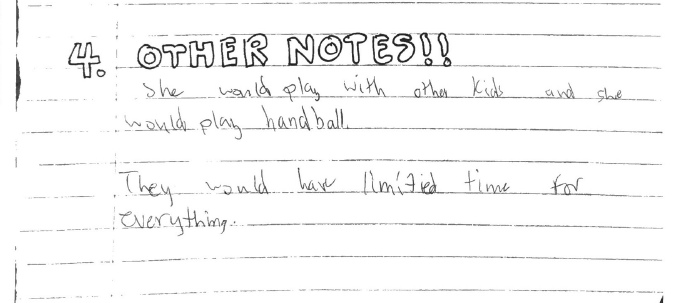 4. OTHER NOTES!!
She would play with other kids and she
would play handball.
They would have limitied time for
everything.